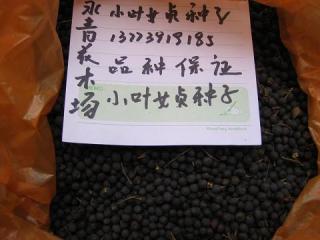 永青苗木场
小叶女贞种子
13773918185
品种保证
小叶女贞种子